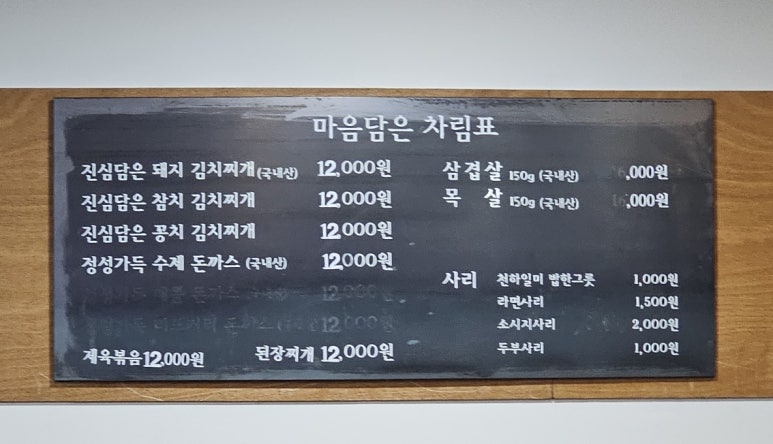 마음담은 차림표
진심담은 돼지 김치찌개(국내산) 12,000원
진심담은 참치 김치찌개 12,000원
진심담은 꽁치 김치찌개 12,000원
정성가득 수제 돈까스 (국내산) 12,000원
돈까스 12,000원
돈까스 12,000원
제육볶음 12,000원 된장찌개 12,000원
삼겹살 150g (국내산) ,000원
목 살 150g (국내산) ,000원
사리 천하일미 밥한그릇 1,000원
라면사리 1,500원
소시지사리 2,000원
두부사리 1,000원